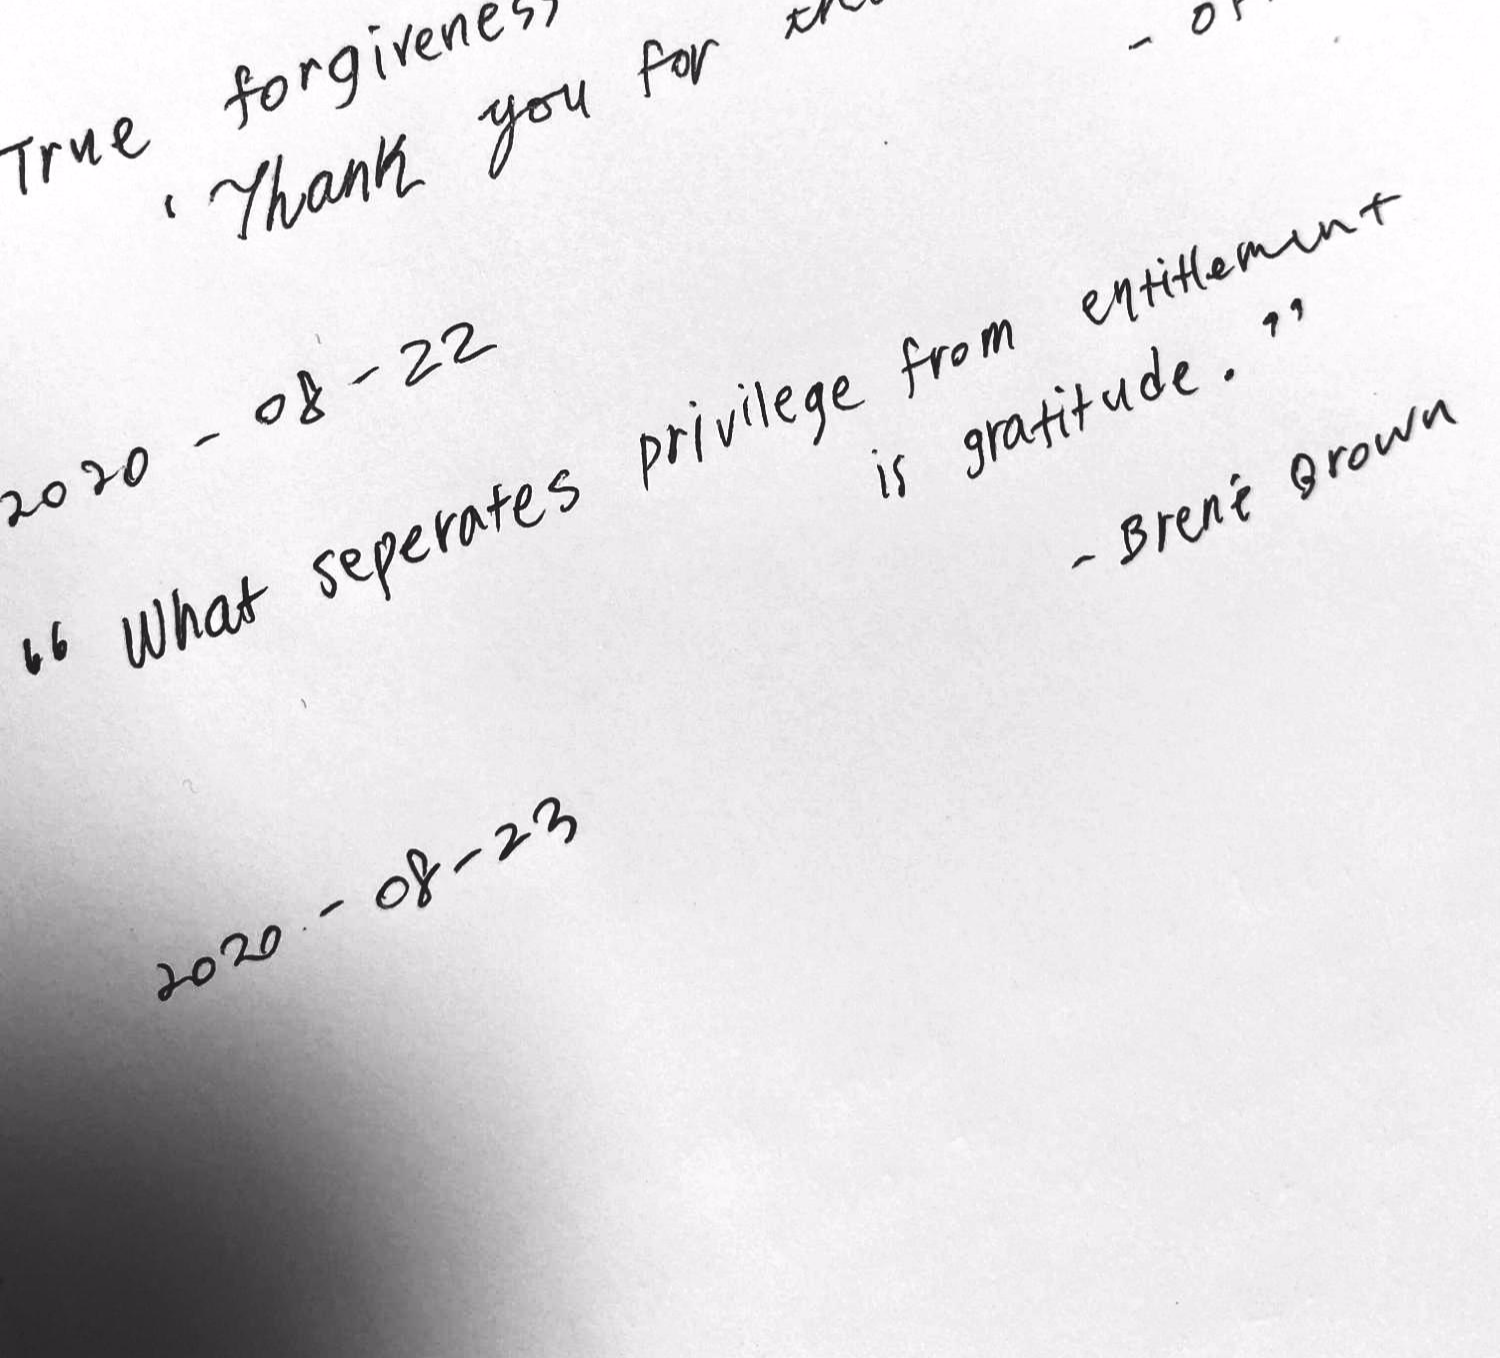 True forgiveness
'Thank you for
- O
2020 - 08 - 22
“ What seperates privilege from entitlement
is gratitude. ”
- Brené Brown
2020 - 08 - 23